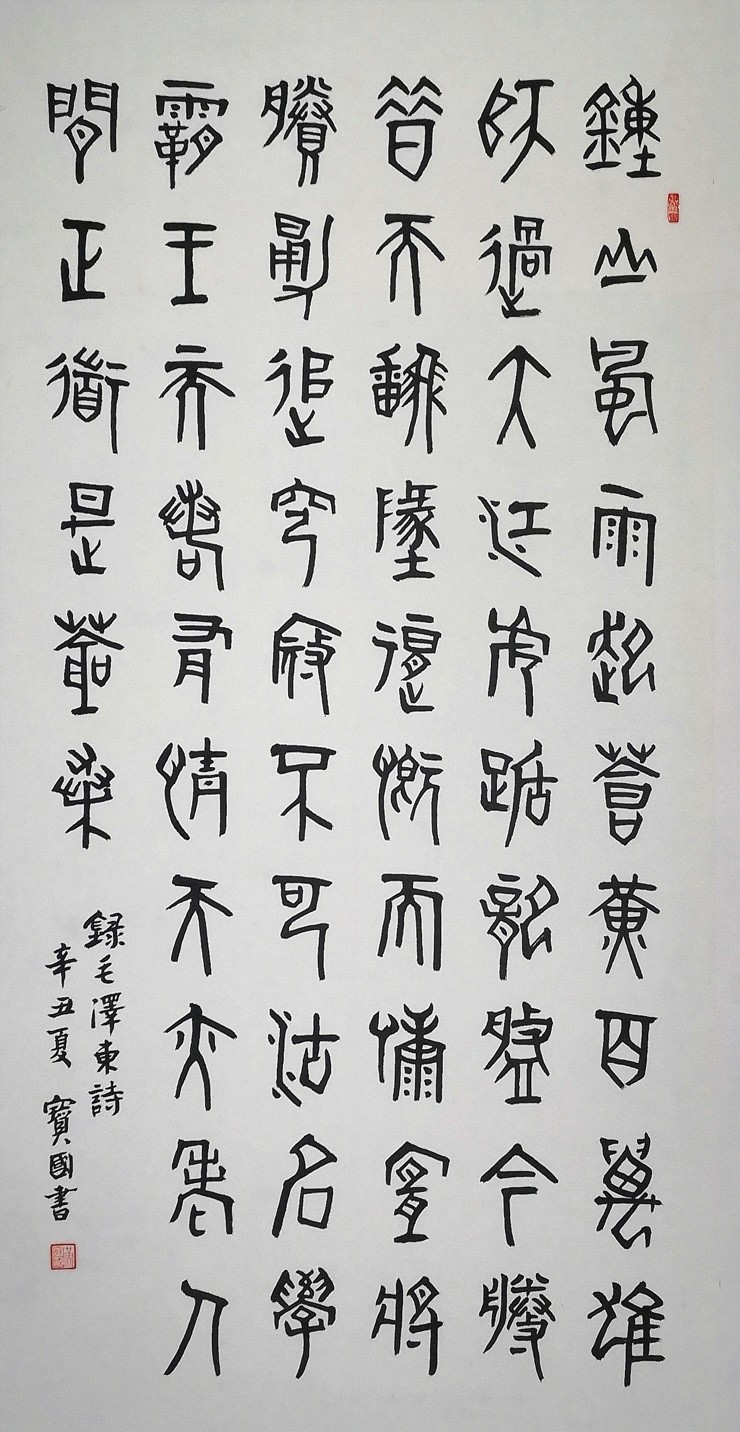 鍾山風雨起蒼黃百萬雄
師過大江虎踞龍盤今勝
昔天翻地覆慨而慷宜將
剩勇追窮寇不可沽名學
霸王天若有情天亦老人
間正道是滄桑
録毛澤東詩
辛丑夏 寶國書